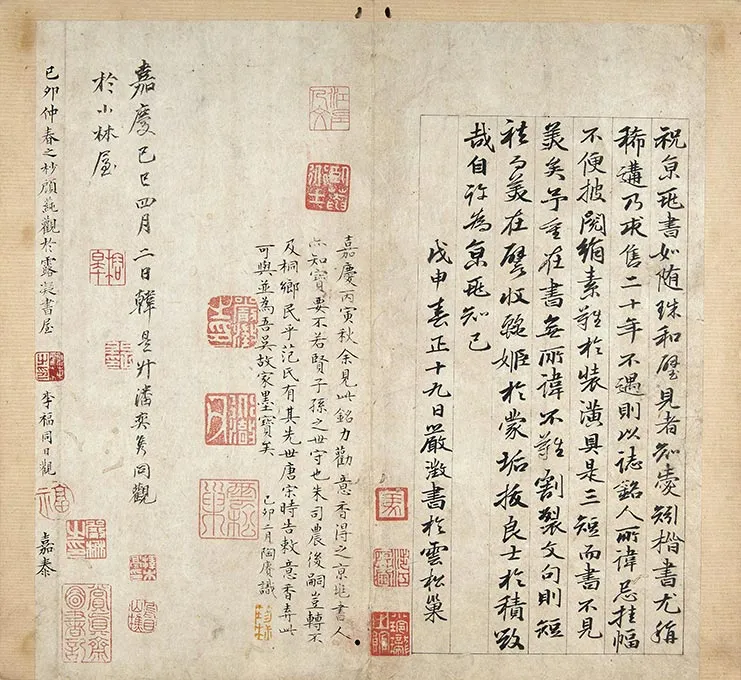 祝京兆書如隨珠和璧見者知愛矧楷書尤絕
稀遘乃求售二十年不遇則以誌銘人所諱忌挂幅
不便披閱縮素難於裝潢具是三短而書不見
美矣予重在書無所諱不難割裂文句則短
袪而美在譬收驪姬於蒙垢拔良士於積毀
哉自許為京兆知己
戊申春正十九日嚴澂書於雲松巢
嘉慶丙寅秋余見此銘力勸意香得之京兆書人
亦知寶要不若賢子孫之世守也朱司農後嗣豈轉不
及桐鄉民乎范氏有其先世唐宋時告敕意香弆此
可與並為吾吳故家墨寶矣
己卯二月陶賡識
嘉慶己巳四月二日韓是升潘奕雋同觀
於小林屋
己卯仲春之杪顧蒓觀於露凝書屋
李福同日觀
嘉泰